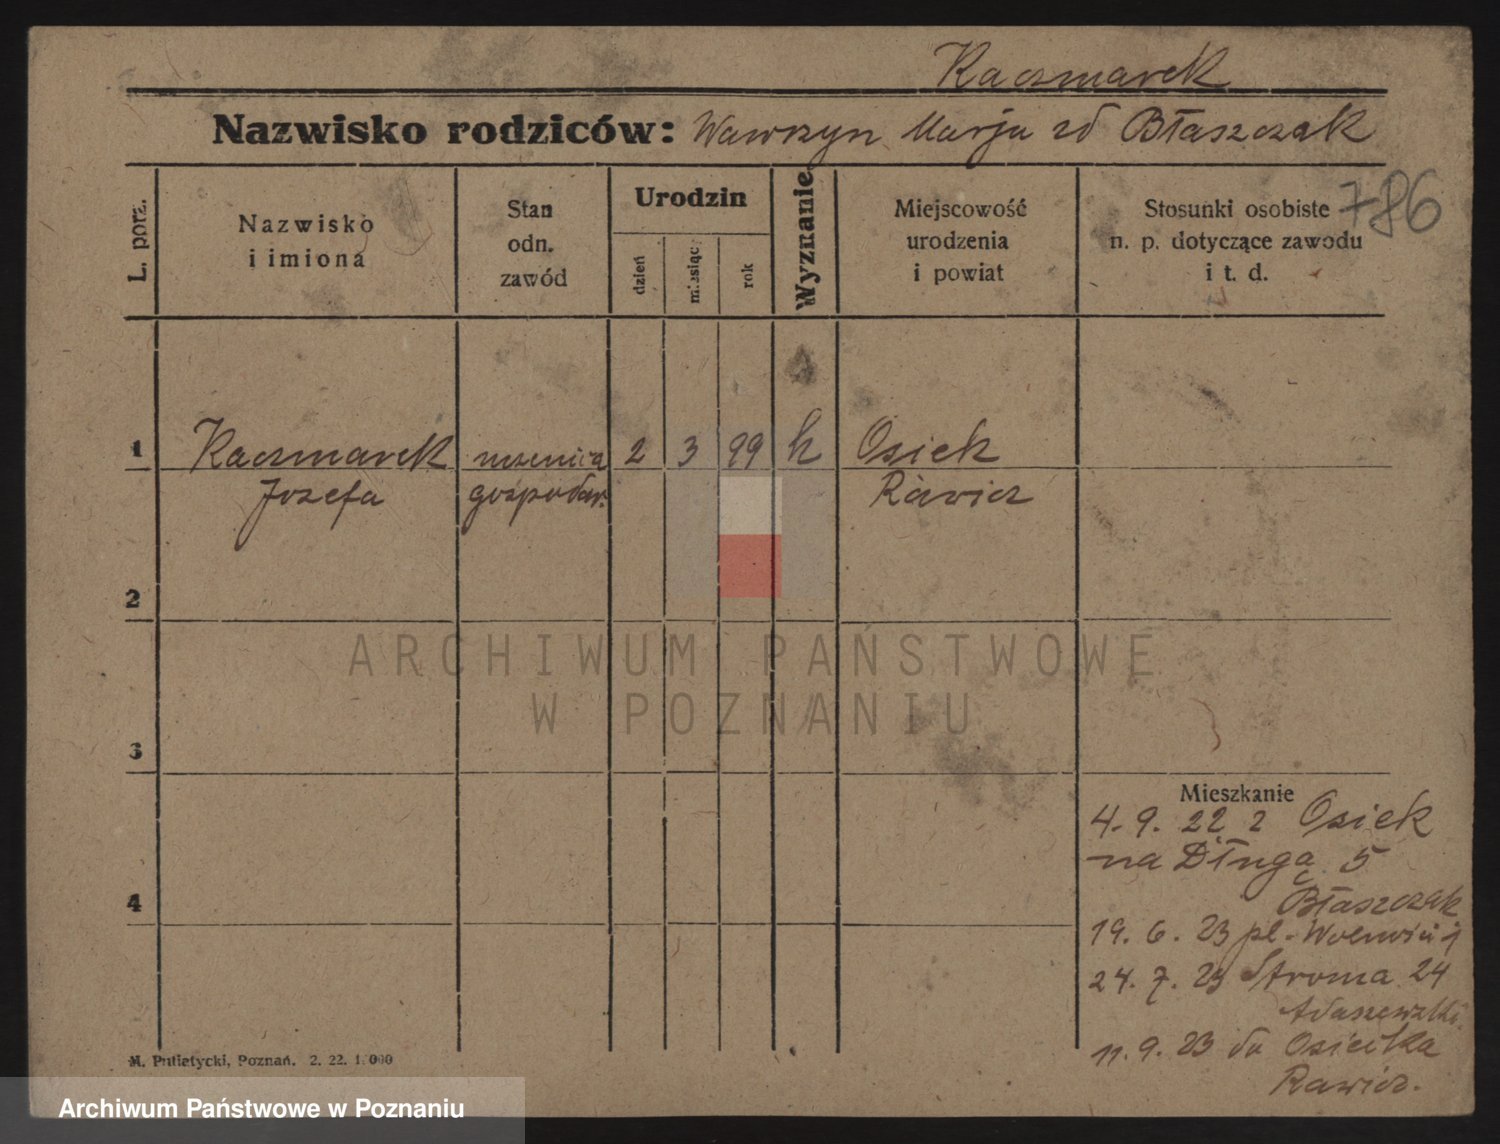 Kaczmarek
Nazwisko rodziców: Wawrzyn Marja zd Błaszczak
786
L. porz.
Nazwisko i imiona
Stan odn. zawód
Urodzin
dzień
miesiąc
rok
Wyznanie
Miejscowość urodzenia i powiat
Stosunki osobiste n. p. dotyczące zawodu i t. d.
1 Kaczmarek uczenica 2 3 99 k Osiek
Jozefa gospodar. Rawicz
2
3
4
Mieszkanie
4. 9. 22 z Osiek
na Długą 5
Błaszczak
19. 6. 23 pl. Wolności
24. 7. 23 Stroma 24
11. 9. 23 do Osieka
Rawicz.
M. Putiatycki, Poznań. 2. 22. 1.000
ARCHIWUM PAŃSTWOWE
W POZNANIU
Archiwum Państwowe w Poznaniu